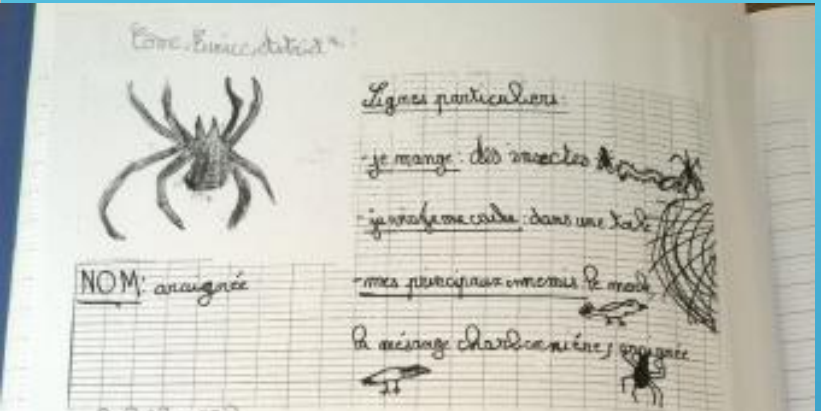 Signes particuliers:
- je mange: des insectes
NOM: araignée
dans une toile
- mes principaux ennemis le merle
la mésange charbonnière, araignée